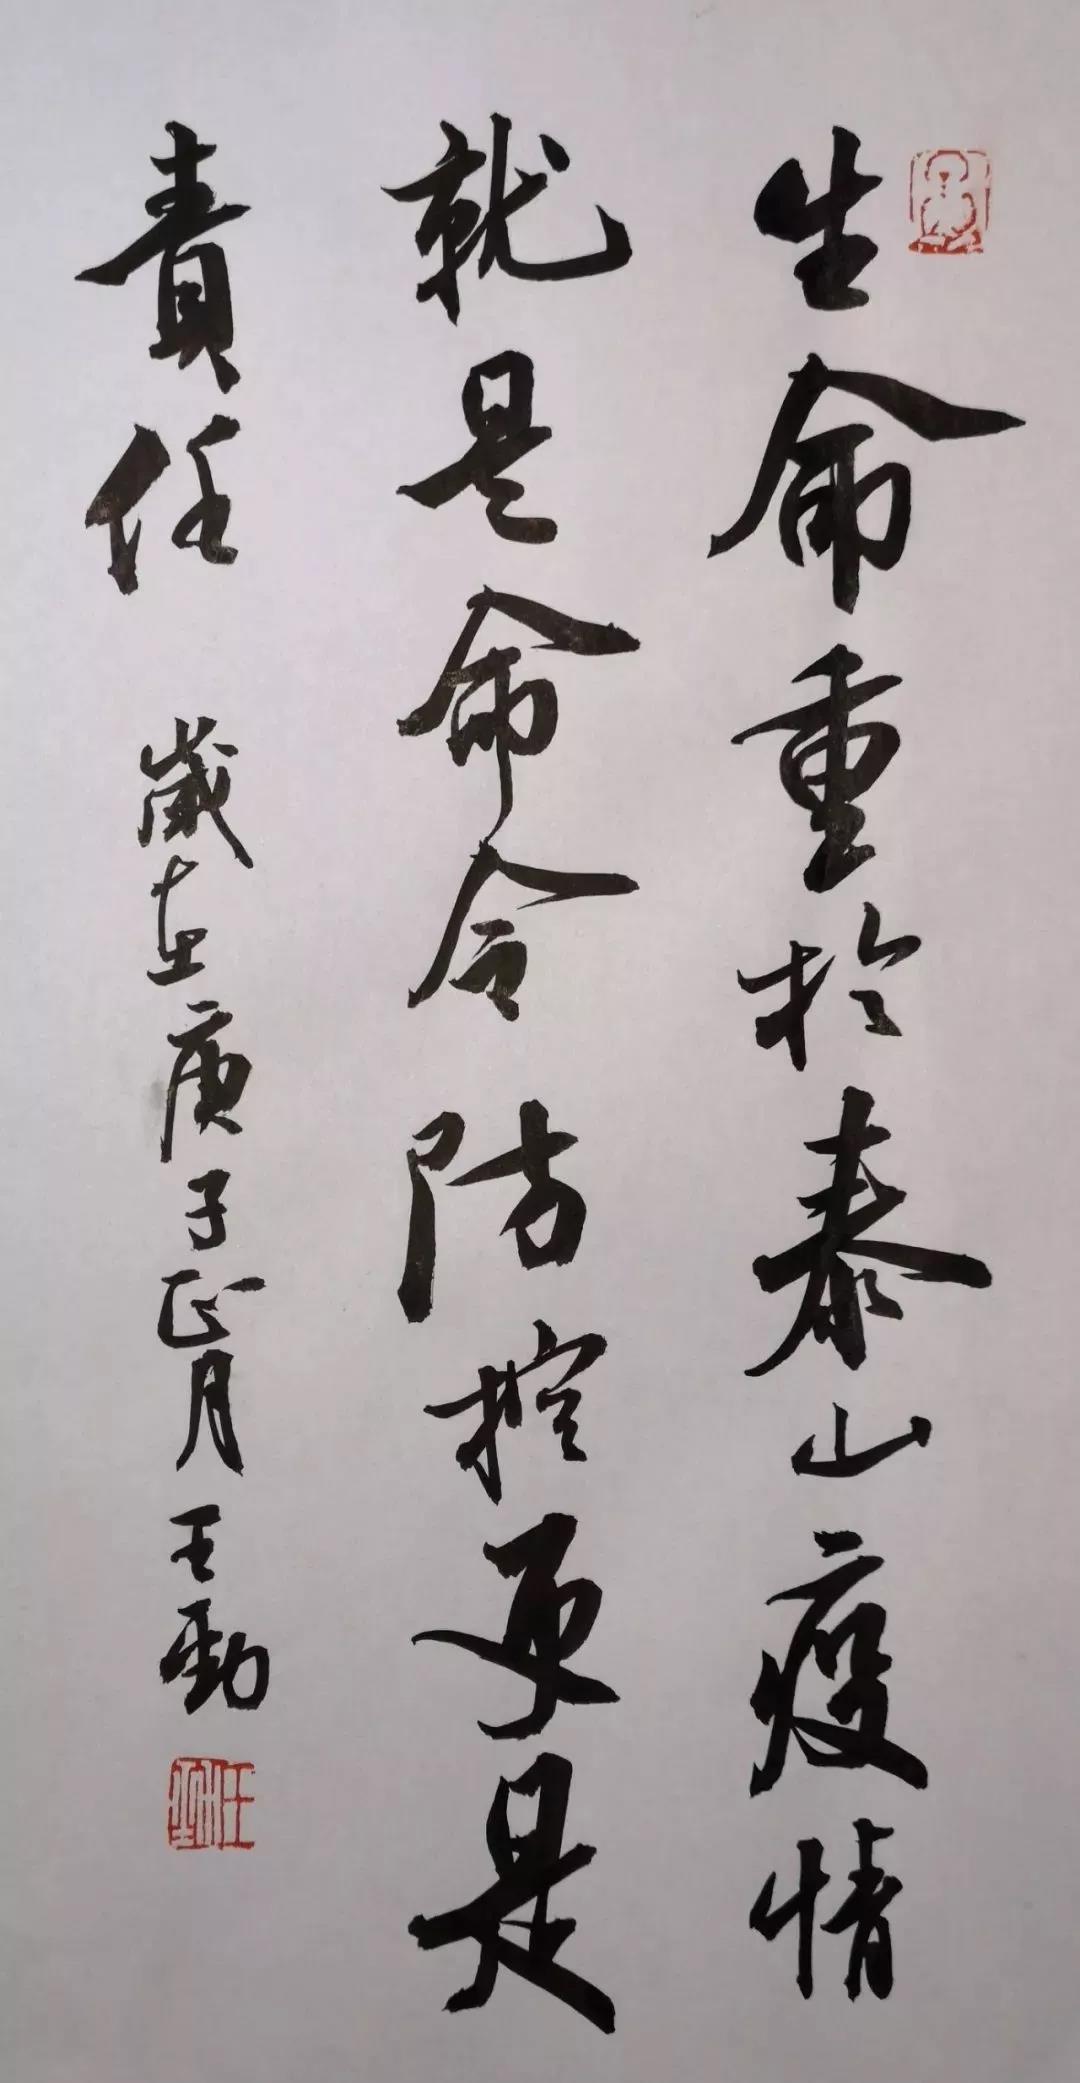 生命重於泰山疫情
就是命令防控更是
責任
歲在庚子正月王勁